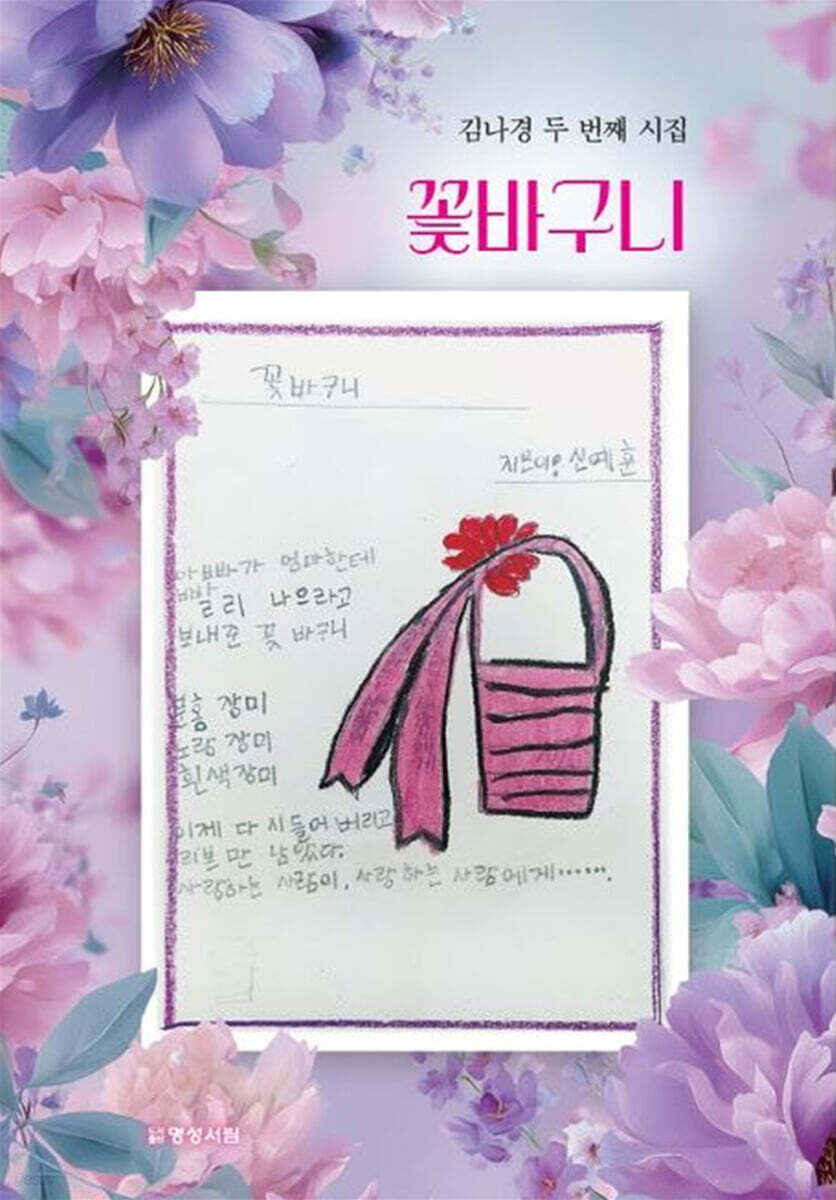 김나경 두 번째 시집
꽃바구니
꽃바구니
지은이 신예훈
아빠가 엄마한테
빨리 나으라고
보내준 꽃 바구니
분홍 장미
노랑 장미
흰색 장미
이제 다 시들어 버리고
리본만 남았다.
사랑하는 사람이, 사랑하는 사람에게······.
명성서림